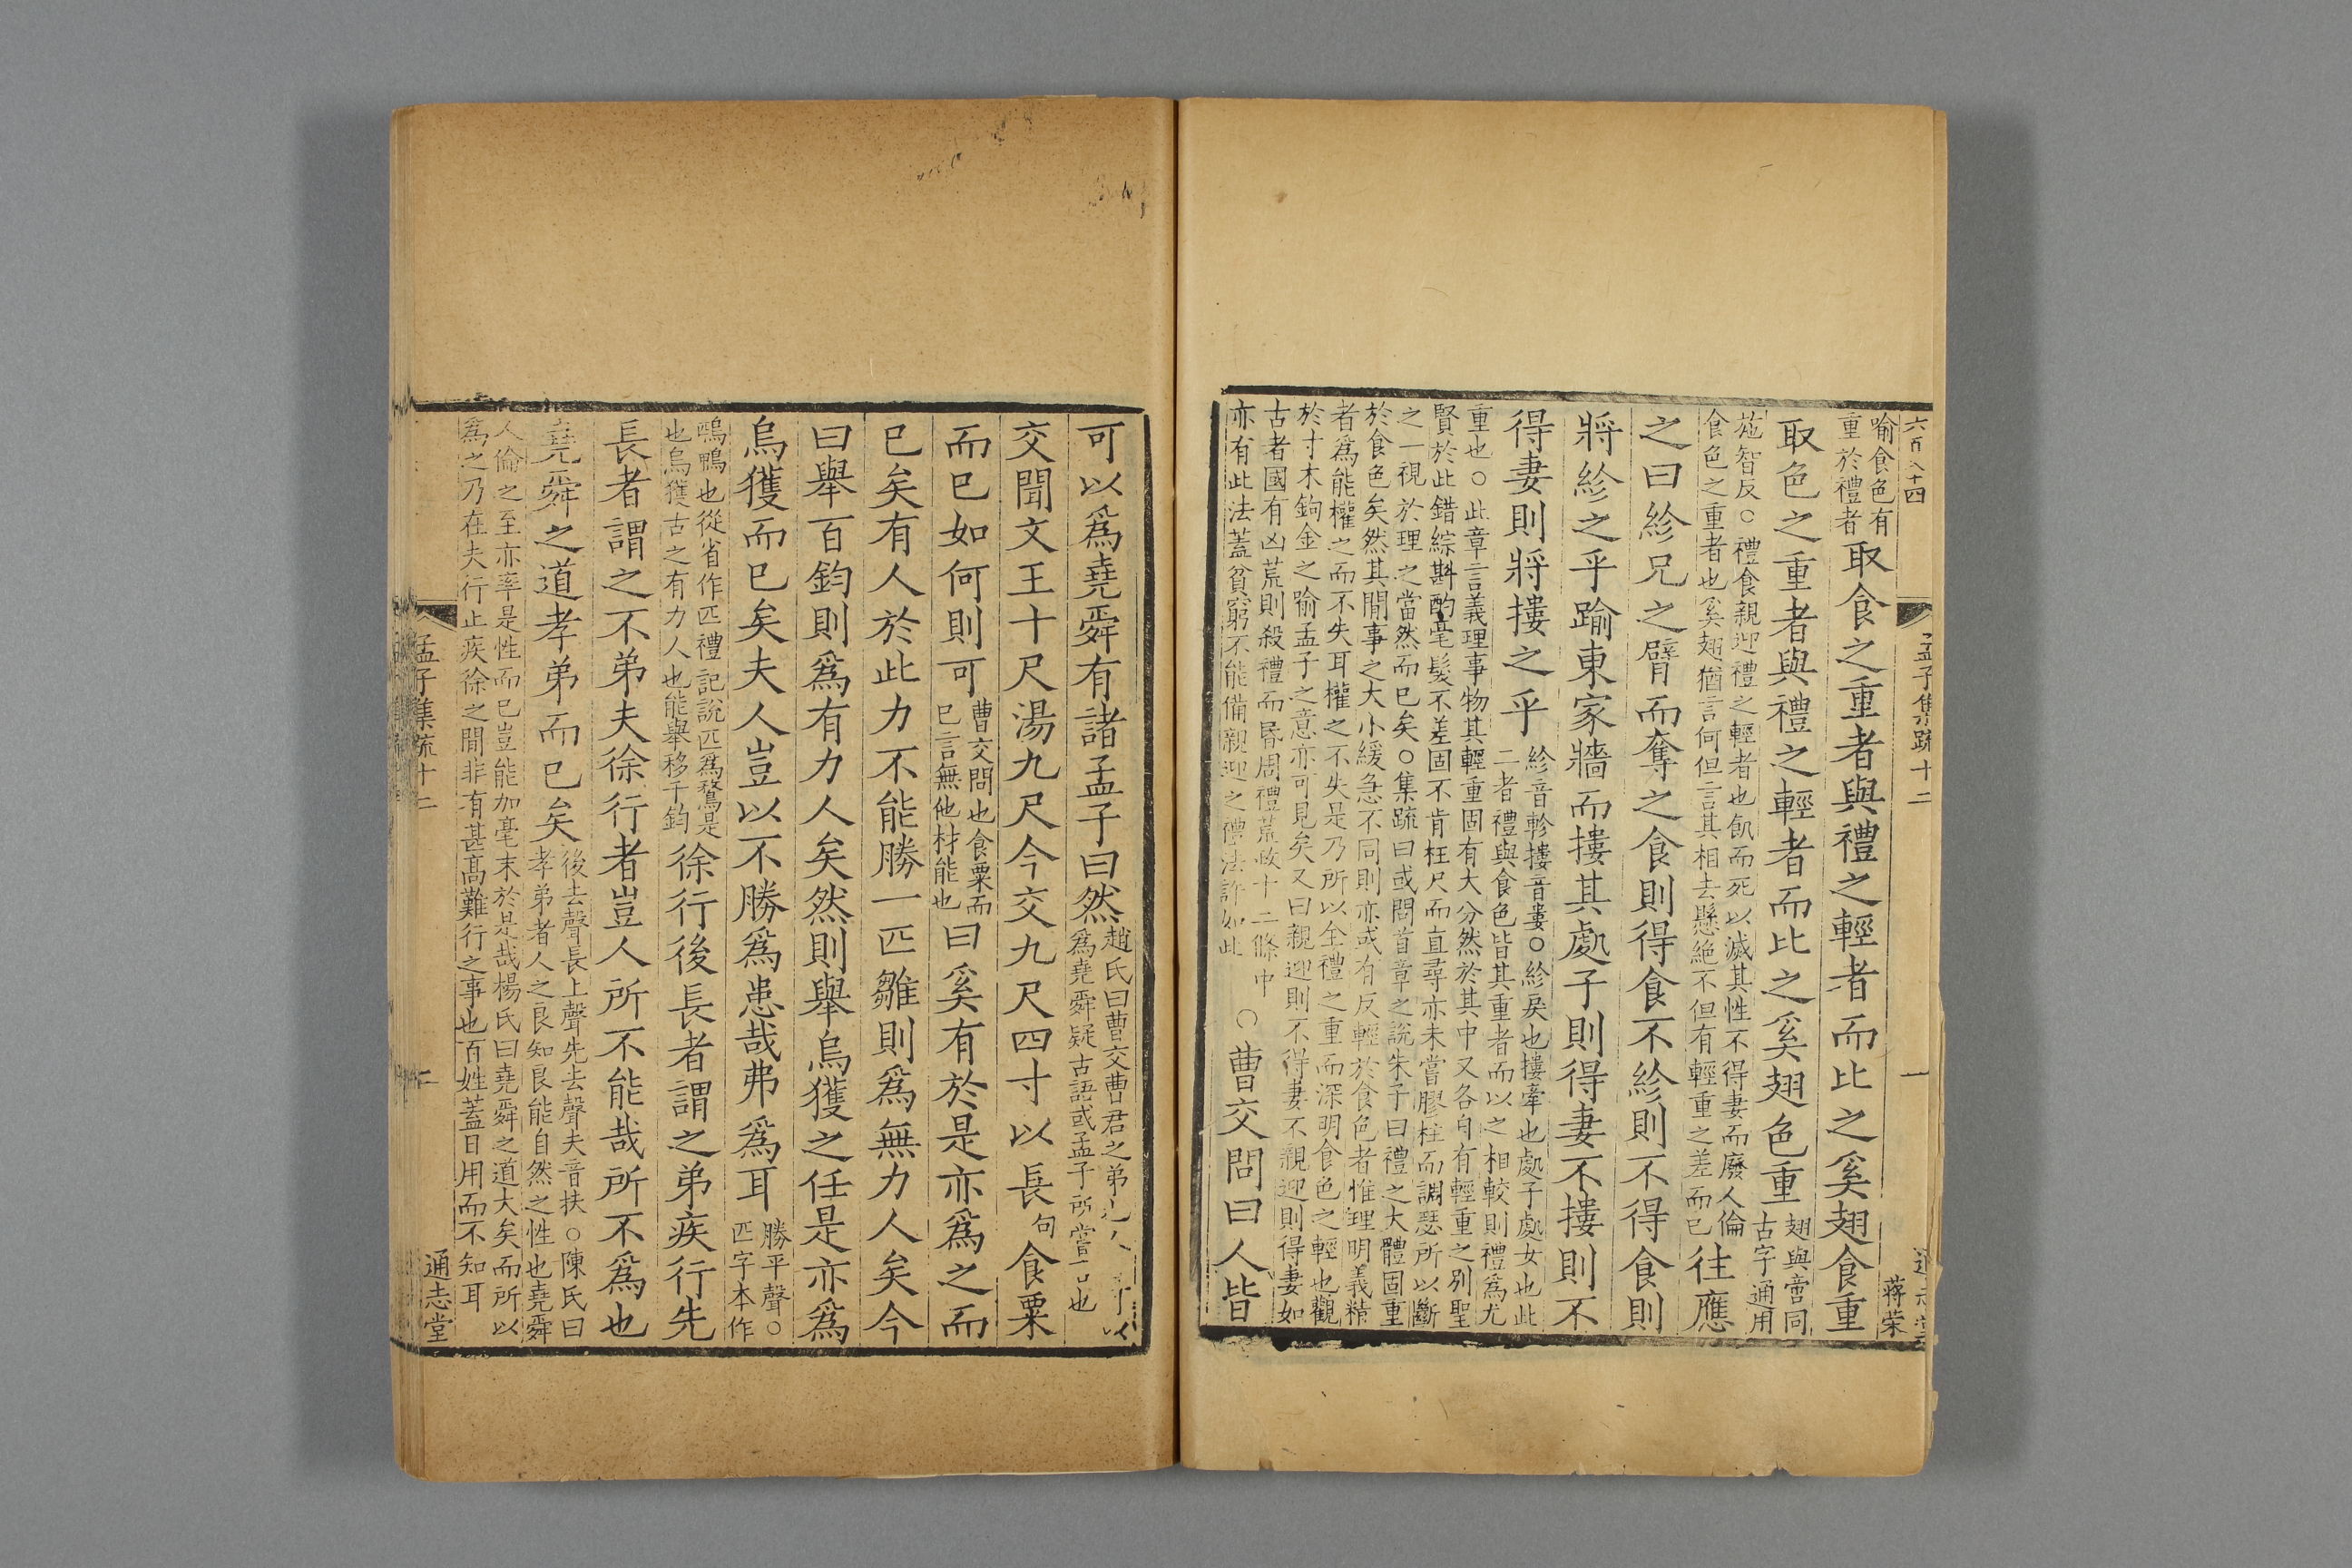 六百八十四
孟子集疏十二
一
蔣榮
喻食色有
重於禮者
取食之重者與禮之輕者而比之奚翅食重
取色之重者與禮之輕者而比之奚翅色重
翅與啻同
古字通用
施智反○禮食親迎禮之輕者也飢而死以滅其性不得妻而廢人倫
食色之重者也奚翅猶言何但言其相去懸絶不但有輕重之差而已
往應
之曰紾兄之臂而奪之食則得食不紾則不得食則
將紾之乎踰東家牆而摟其處子則得妻不摟則不
得妻則將摟之乎
紾音軫摟音婁○紾戾也摟牽也處子處女也此
二者禮與食色皆其重者而以之相較則禮爲尤
重也○此章言義理事物其輕重固有大分然於其中又各自有輕重之別聖
賢於此錯綜斟酌毫髮不差固不肯枉尺而直尋亦未嘗膠柱而調瑟所以斷
之一視於理之當然而已矣○集疏曰或問首章之說朱子曰禮之大體固重
於食色矣然其間事之大小緩急不同則亦或有反輕於食色者惟理明義精
者爲能權之而不失耳權之不失是乃所以全禮之重而深明食色之輕也觀
於寸木鉤金之喻孟子之意亦可見矣又曰親迎則不得妻不親迎則得妻如
古者國有凶荒則殺禮而昬周禮荒政十二條中
亦有此法蓋貧窮不能備親迎之禮法許如此
○曹交問曰人皆
可以爲堯舜有諸孟子曰然
趙氏曰曹交曹君之弟也人可以
爲堯舜疑古語或孟子所嘗言也
交聞文王十尺湯九尺今交九尺四寸以長
句
食粟
而已如何則可
曹交問也食粟而
已言無他材能也
曰奚有於是亦爲之而
已矣有人於此力不能勝一匹雛則爲無力人矣今
曰舉百鈞則爲有力人矣然則舉烏獲之任是亦爲
烏獲而已矣夫人豈以不勝爲患哉弗爲耳
勝平聲○
匹字本作
鴄鴨也從省作匹禮記說匹爲鶩是
也烏獲古之有力人也能舉移千鈞
徐行後長者謂之弟疾行先
長者謂之不弟夫徐行者豈人所不能哉所不爲也
堯舜之道孝弟而已矣
後去聲長上聲先去聲夫音扶○陳氏曰
孝弟者人之良知良能自然之性也堯舜
人倫之至亦率是性而已豈能加毫末於是哉楊氏曰堯舜之道大矣而所以
爲之乃在夫行止疾徐之間非有甚高難行之事也百姓蓋日用而不知耳
孟子集疏十二
二
通志堂